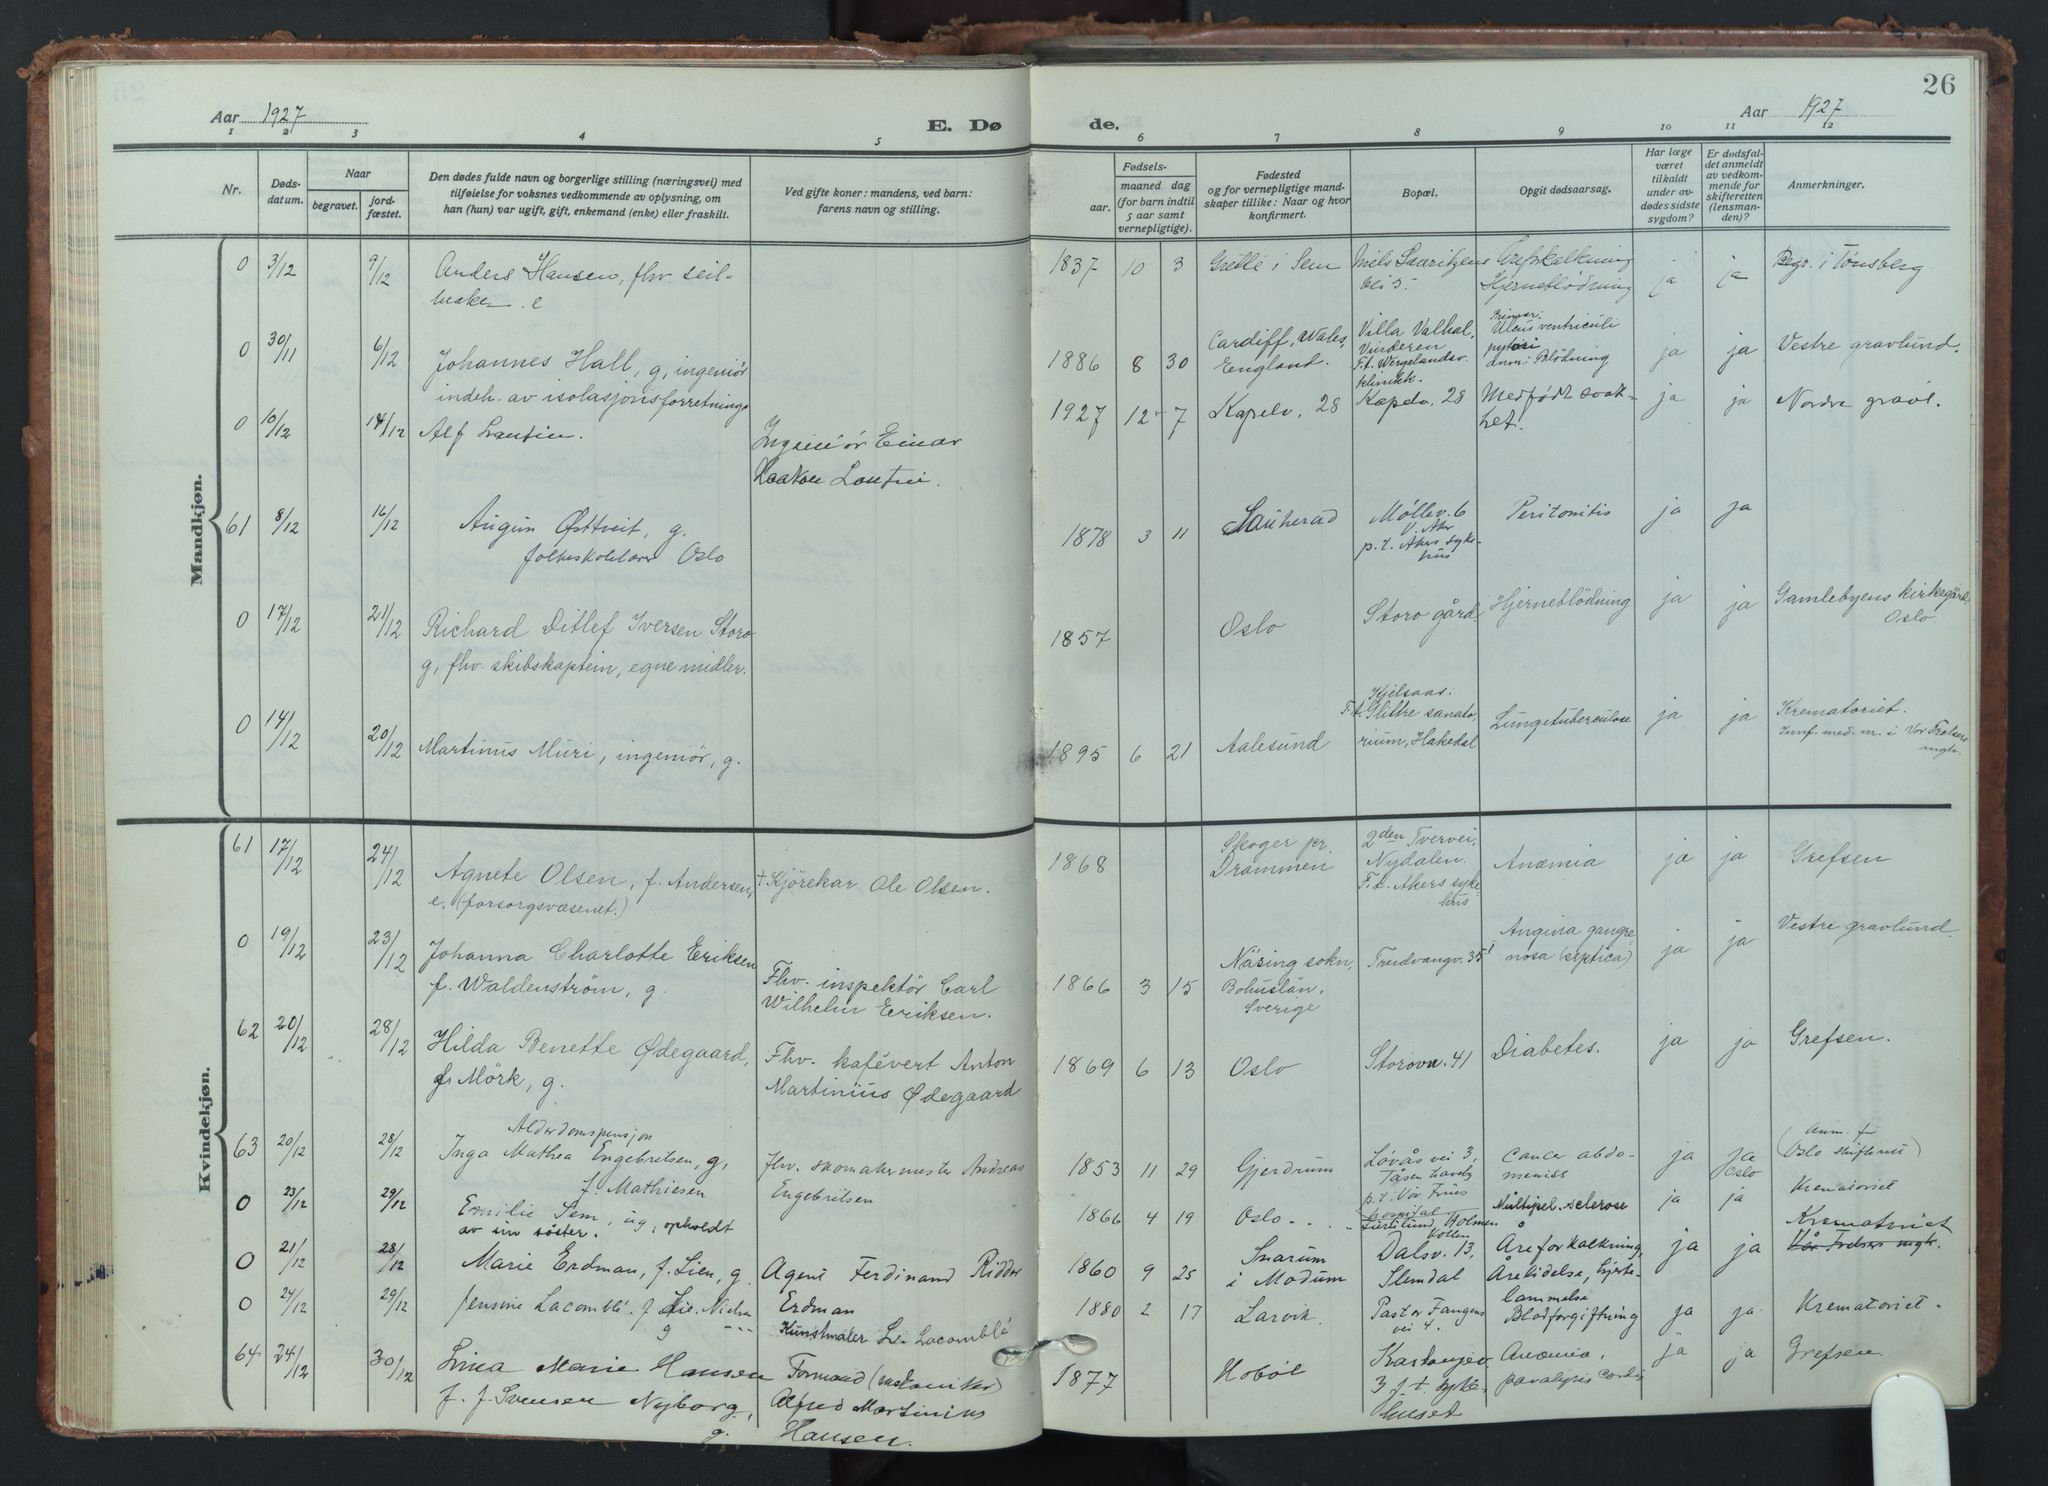 26
Aar 1927
E. Dø
de.
Aar 1927
1 2 3 4 5 6 7 8 9 10 11 12
Nr.
Døds-
datum.
Naar
begravet.
jord-
fæstet.
Den dødes fulde navn og borgerlige stilling (næringsvei) med
tilføielse for voksnes vedkommende av oplysning, om
han (hun) var ugift, gift, enkemand (enke) eller fraskilt.
Ved gifte koner: mandens, ved barn:
farens navn og stilling.
Fødsels-
aar.
maaned dag
(for barn indtil
5 aar samt
vernepligtige).
Fødested
og for vernepligtige mand-
skaper tillike: Naar og hvor
konfirmert.
Bopæl.
Opgit dødsaarsag.
Har læge
været
tilkaldt
under av-
dødes sidste
sygdom?
Er dødsfal-
det anmeldt
av vedkom-
mende for
skifteretten
(lensman-
den)?
Anmerkninger.
Mandkjøn.
0 3/12 9/12 Anders Hansen, fhv. seil-
maker. e
1837 10 3 Grette i Sem
Niels Lauritzens
vei 5.
Åreforkalkning
Hjerneblödning
ja ja Begr. i Tønsberg
0 30/11 6/12 Johannes Hall, g, ingeniør
indeh. av isolasjonsforretning
1886 8 30
Cardiff, Wales,
England.
Villa Valhal,
Vinderen
F.t. Wergelandsv.
klinikk.
Ulcus ventriculi
Blödning
ja ja Vestre gravlund.
0 10/12 14/12 Alf Lautin.
Ingeniör Einar
Haakon Lautin.
1927 12 7 Kapelv. 28
Kapelv. 28
Medfødt svak-
het.
ja ja Nordre gravl.
61 8/12 16/12 Augun Østtveit, g.
folkeskolelærer Oslo
1878 3 11 Sauherad
Møllev. 6
V. Aker
p.t. Akers syke-
hus
Peritonitis
ja ja
0 17/12 21/12 Richard Ditlef Iversen Storo
g, fhv. skibskaptein, egne midler.
1857 Oslo
Storo gård,
Hjerneblödning
ja ja Gamlebyens kirkegård
Oslo.
0 14/12 20/12 Martinus Muri, ingeniør, g.
1895 6 21 Aalesund
Kjelsaas.
F.t. Glittre sanato-
rium, Hakedal
Lungetuberculose
ja ja Krematoriet.
Innf. med nr. i Vor Frelsers
mgh.
Kvindekjøn.
61 17/12 24/12 Agnete Olsen, f. Andersen,
e. (forsorgsvæsenet.)
+ Kjörekar Ole Olsen.
1868
Skoger pr.
Drammen
2den Tvervei,
Nydalen.
F.t. Akers syke
hus
Anæmia
ja ja Grefsen
0 19/12 23/12 Johanna Charlotte Eriksen
f. Waldenström, g.
Fhv. inspektör Carl
Wilhelm Eriksen.
1866 3 15
Näsing sokn,
Bohuslän,
Sverige
Trudvangv. 35
Angina gangre
nosa (septica)
ja ja Vestre gravlund
62 20/12 28/12 Hilda Benette Ødegaard,
f. Mörk, g.
Fhv. kafévert Anton
Martinius Ødegaard
1869 6 13 Oslo
Storovn. 41
Diabetes.
ja ja Grefsen.
63 20/12 28/12
Alderdomspensjon
Inga Mathea Engebritsen, g,
f. Mathiesen
fhv. skomakermester Andreas
Engebritsen
1853 11 29 Gjerdrum
Løvås vei 3,
Tåsen haveby
p.t. Vor Frues
hospital
Cancer abdo-
minis
ja ja
Oslo
(Anm. for
Oslo skifterett)
0 23/12 29/12 Emilie Sem, ug, opholdt
av sin söster.
1866 4 19 Oslo
Furulund, Holmen
Vollen
Multipel sclerose
ja ja Krematoriet
0 21/12 28/12 Marie Erdman, f. Lien, g.
Agent Ferdinand Ridder
Erdman
1860 9 25
Snarum
i Modum
Dalsv. 13,
Slemdal
Åreforkalkning,
Årelidelse, hjerte-
lammelse
ja ja
Krematoriet
Vår Frelsers mgh.
0 24/12 29/12 Jensine Lacomblé f. Lie-Nielsen
g
Kunstmaler L. Lacomblé
1880 2 17 Larvik.
Pastor Fangens
vei 4.
Blodforgiftning
ja ja Krematoriet.
64 24/12 30/12 Lina Marie Hansen
f. Svensen Nyborg,
g.
Formand (mekaniker)
Alfred Martinius
Hansen.
1877 Hobøl
Kastanjev.
3 f.t. syke-
huset
Anæmia,
paralysis cordis
ja ja Grefsen.